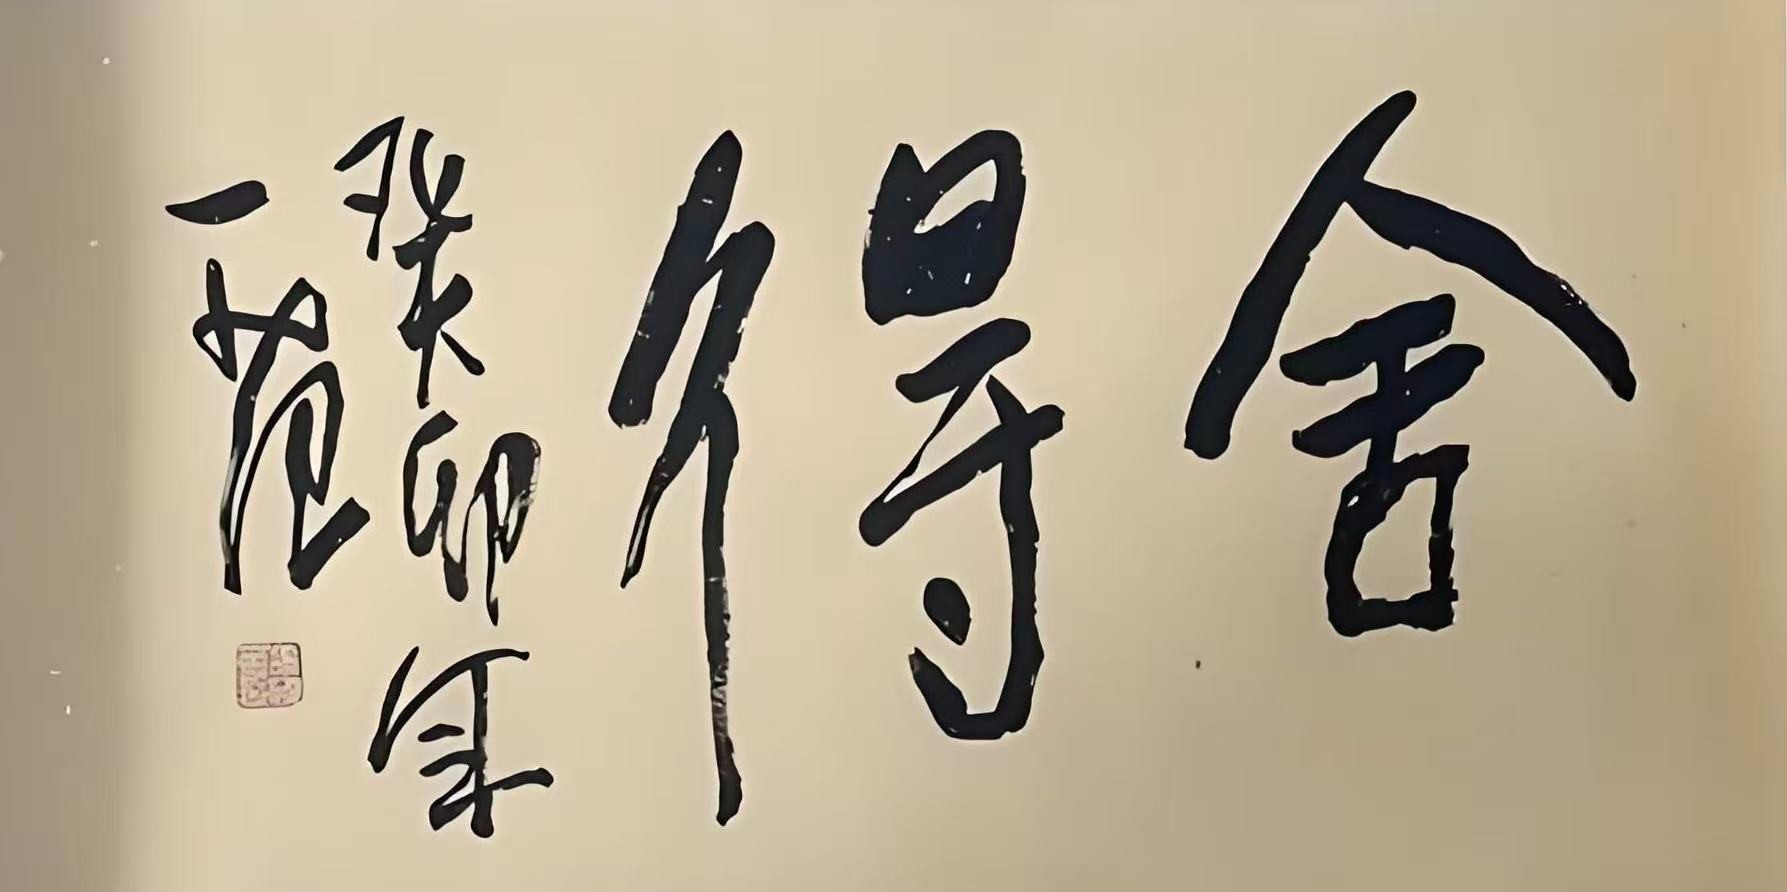 舍得
癸卯年
一